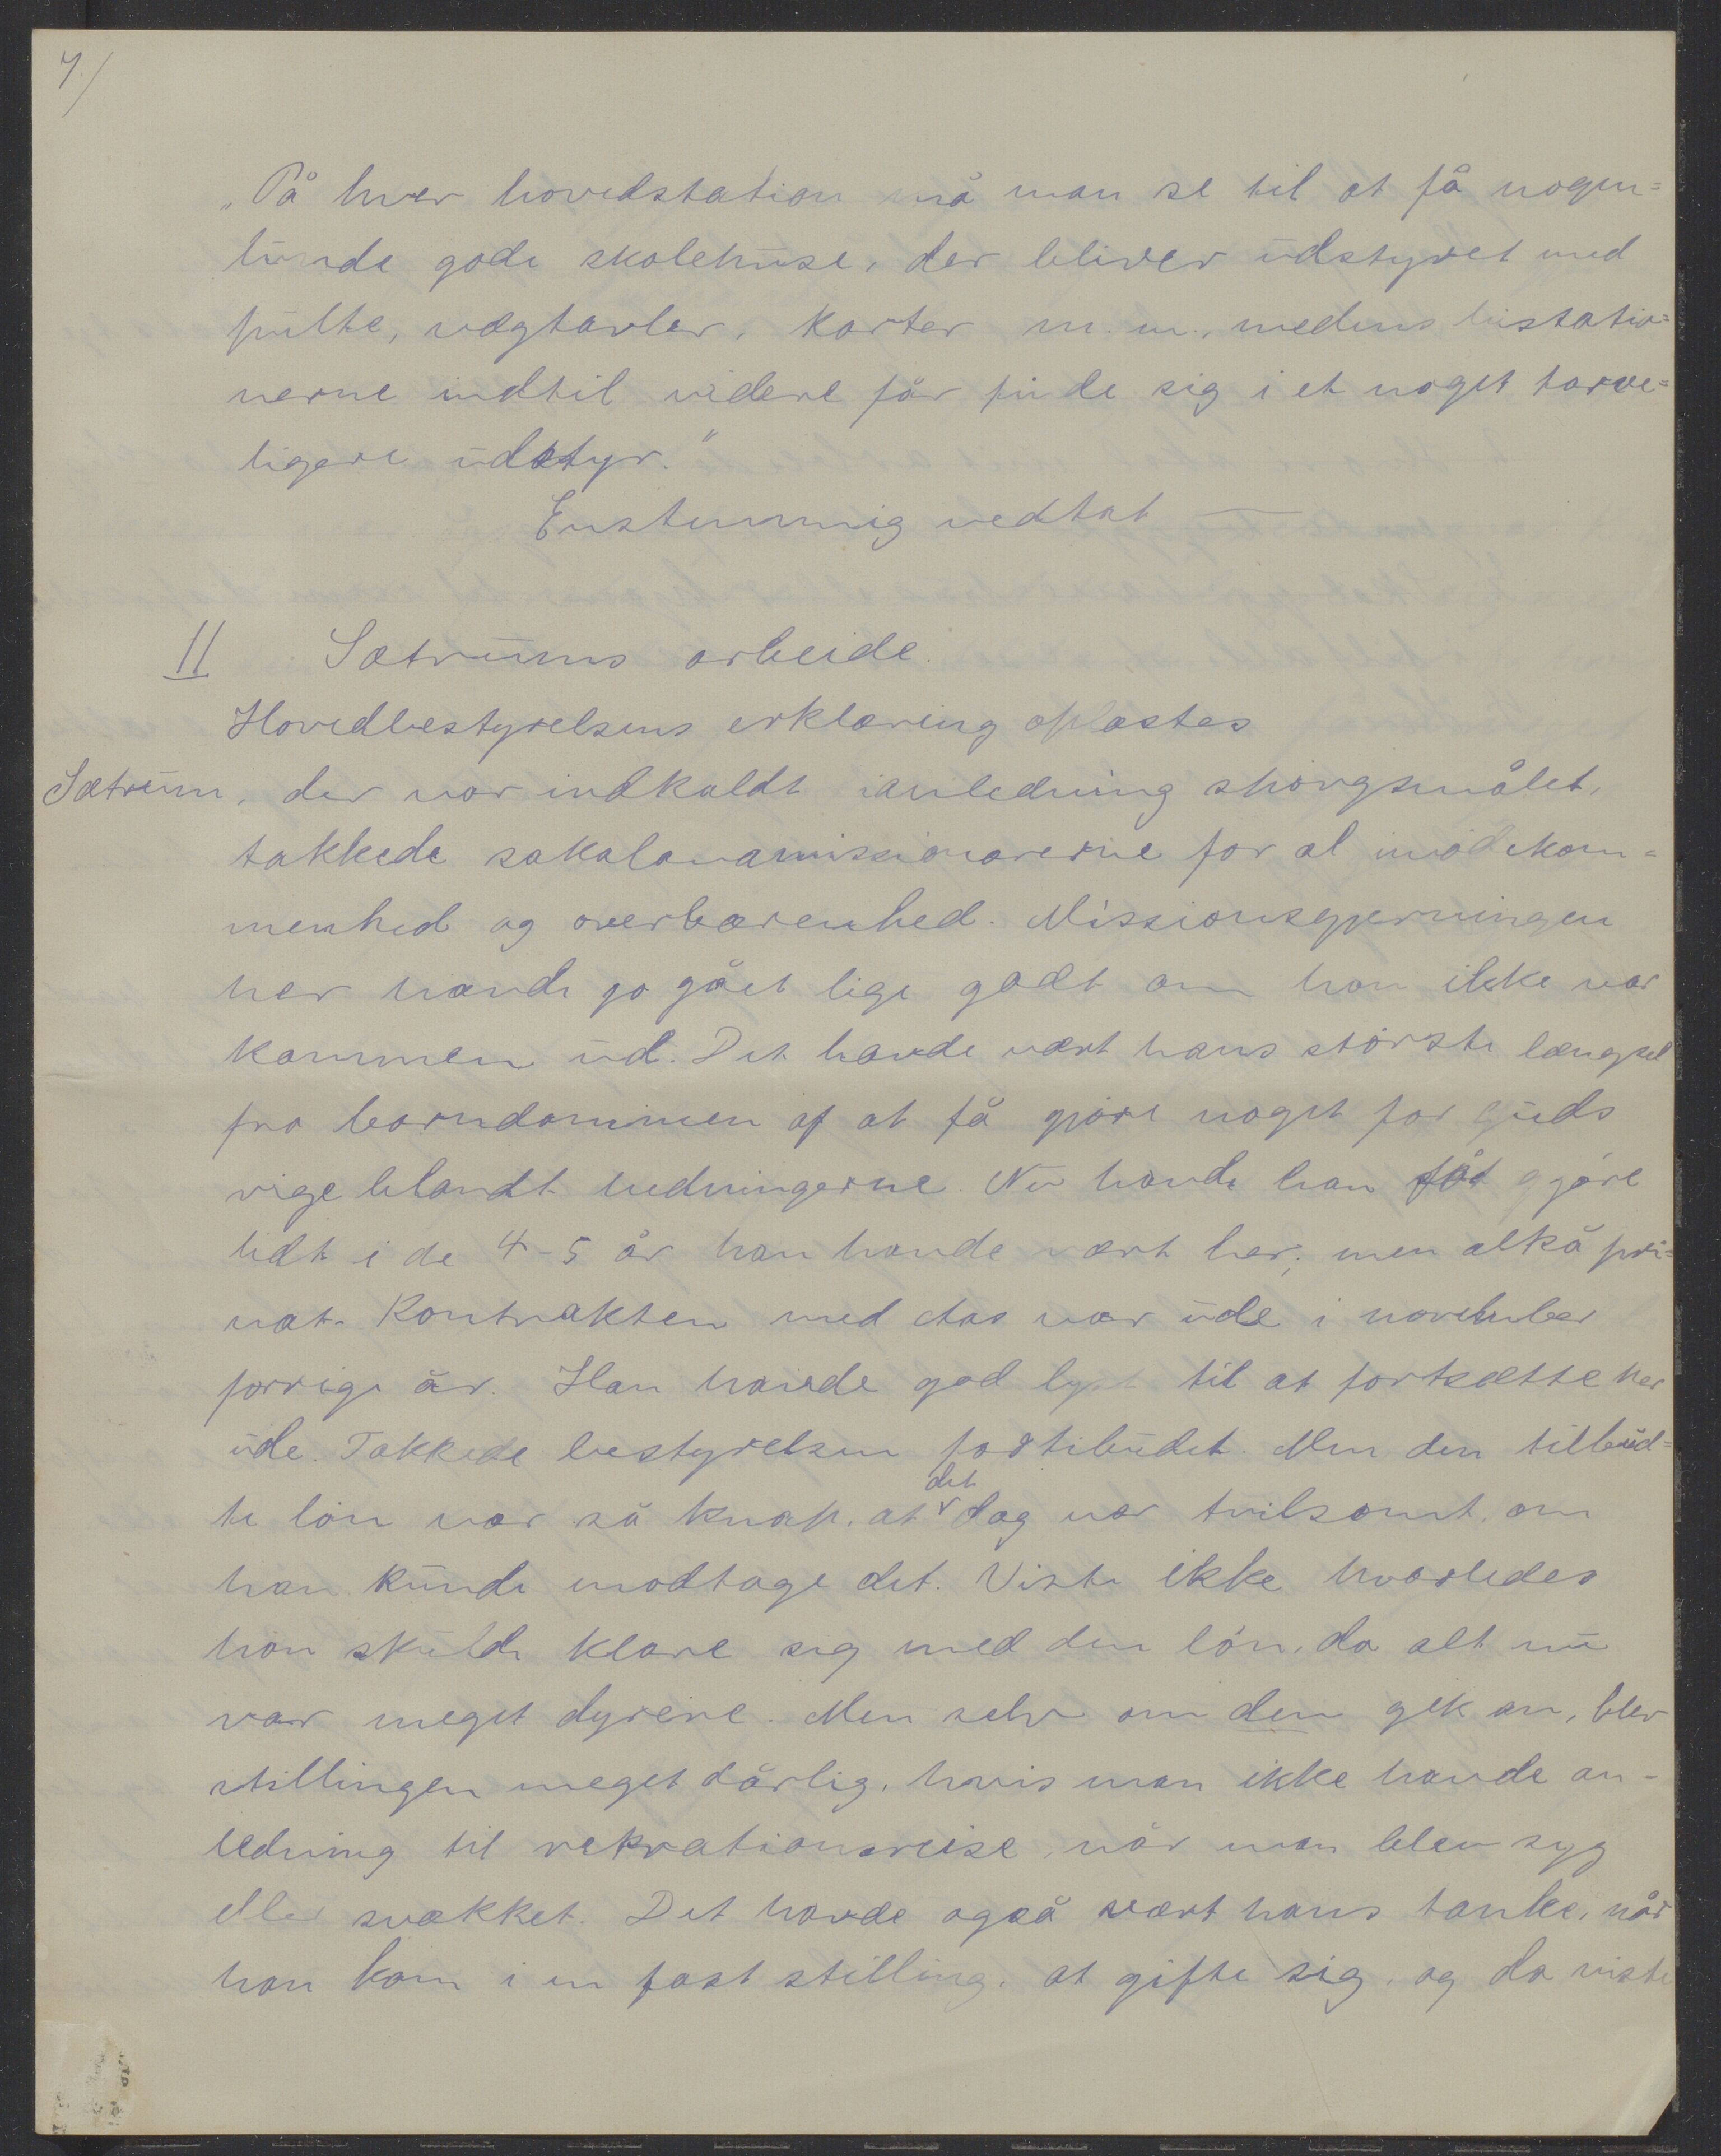 7/
„På hver hovedstation må man se til at få nogen=
lunde gode skolehuse, der bliver udstyret med
pulte, vægtavler, karter m.m., medens bistatio=
nerne indtil videre får finde sig i et noget tarve=
ligere udstyr."
Enstemmig vedtat —
II Sætrums arbeide.
Hovedbestyrelsens erklæring oplæstes
Sætrum, der var indkaldt ianledning spörgsmålet,
takkede sakalavamissionærerne for al imödekom=
menhed og overbærenhed. Missionsgjerningen
her havde jo gået lige godt om han ikke var
kommen ud. Det havde vært hans störste længsel
fra barndommen af at få gjöre noget for Guds
rige blandt hedningerne. Nu havde han fåt gjöre
lidt i de 4-5 år han havde vært her; men altså pri=
vat. Kontrakten med Aas var ude i november
forrige år. Han havde god lyst til at fortsætte her
ude. Takkede bestyrelsen for tilbudet. Men den tilbud=
te lön var så knap, at det dog var tvilsomt, om
han kunde modtage det. Viste ikke hvorledes
han skulde klare sig med den lön, da alt nu
var meget dyrere. Men selv om den gik an, blev
stillingen meget dårlig, hvis man ikke havde an-
ledning til rekrationsreise, når man blev syg
eller svækket. Det havde også vært hans tanke, når
han kom i en fast stilling, at gifte sig, og da viste